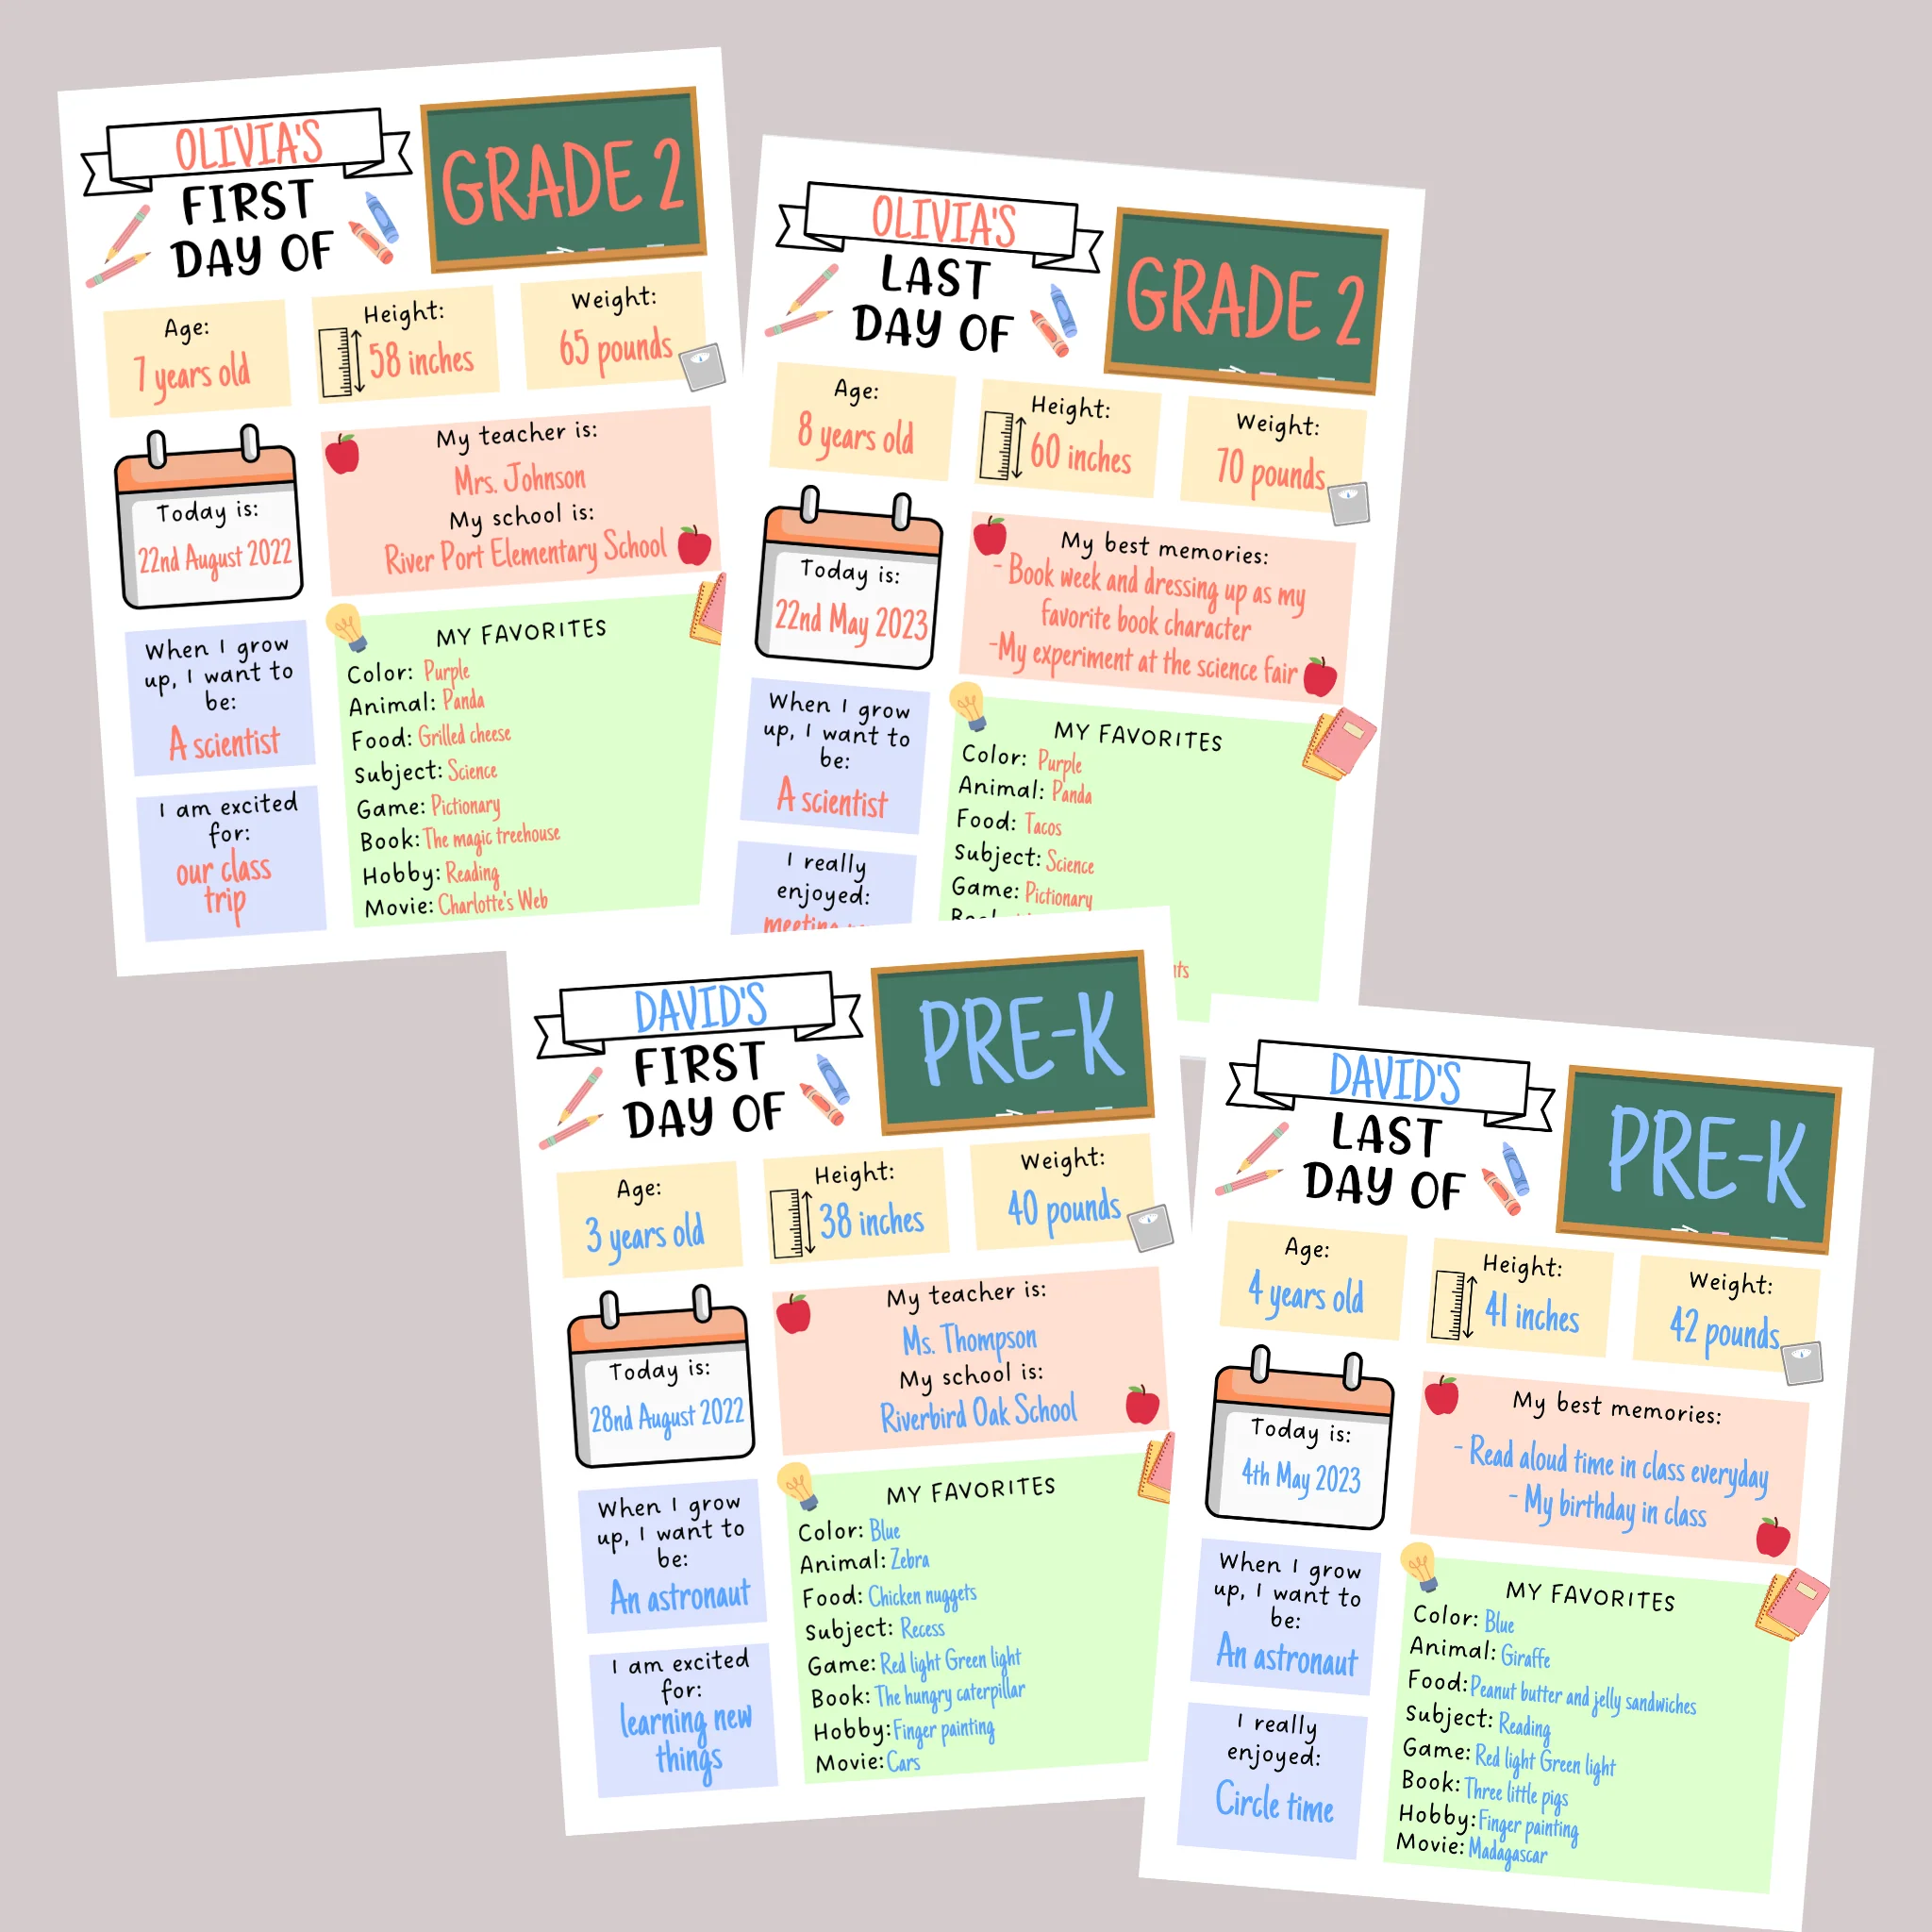 OLIVIA'S
FIRST
DAY OF
GRADE 2
Age:
7 years old
Height:
58 inches
Weight:
65 pounds
Today is:
22nd August 2022
My teacher is:
Mrs. Johnson
My school is:
River Port Elementary School
When I grow
up, I want to
be:
A scientist
I am excited
for:
our class
trip
MY FAVORITES
Color: Purple
Animal: Panda
Food: Grilled cheese
Subject: Science
Game: Pictionary
Book: The magic treehouse
Hobby: Reading
Movie: Charlotte's Web
OLIVIA'S
LAST
DAY OF
GRADE 2
Age:
8 years old
Height:
60 inches
Weight:
70 pounds
Today is:
22nd May 2023
My best memories:
- Book week and dressing up as my
favorite book character
-My experiment at the science fair
When I grow
up, I want to
be:
A scientist
I really
enjoyed:
meeting
MY FAVORITES
Color: Purple
Animal: Panda
Food: Tacos
Subject: Science
Game: Pictionary
DAVID'S
FIRST
DAY OF
PRE-K
Age:
3 years old
Height:
38 inches
Weight:
40 pounds
Today is:
28nd August 2022
My teacher is:
Ms. Thompson
My school is:
Riverbird Oak School
When I grow
up, I want to
be:
An astronaut
I am excited
for:
learning new
things
MY FAVORITES
Color: Blue
Animal: Zebra
Food: Chicken nuggets
Subject: Recess
Game: Red light Green light
Book: The hungry caterpillar
Hobby: Finger painting
Movie: Cars
DAVID'S
LAST
DAY OF
PRE-K
Age:
4 years old
Height:
41 inches
Weight:
42 pounds
Today is:
4th May 2023
My best memories:
- Read aloud time in class everyday
- My birthday in class
When I grow
up, I want to
be:
An astronaut
I really
enjoyed:
Circle time
MY FAVORITES
Color: Blue
Animal: Giraffe
Food: Peanut butter and jelly sandwiches
Subject: Reading
Game: Red light Green light
Book: Three little pigs
Hobby: Finger painting
Movie: Madagascar